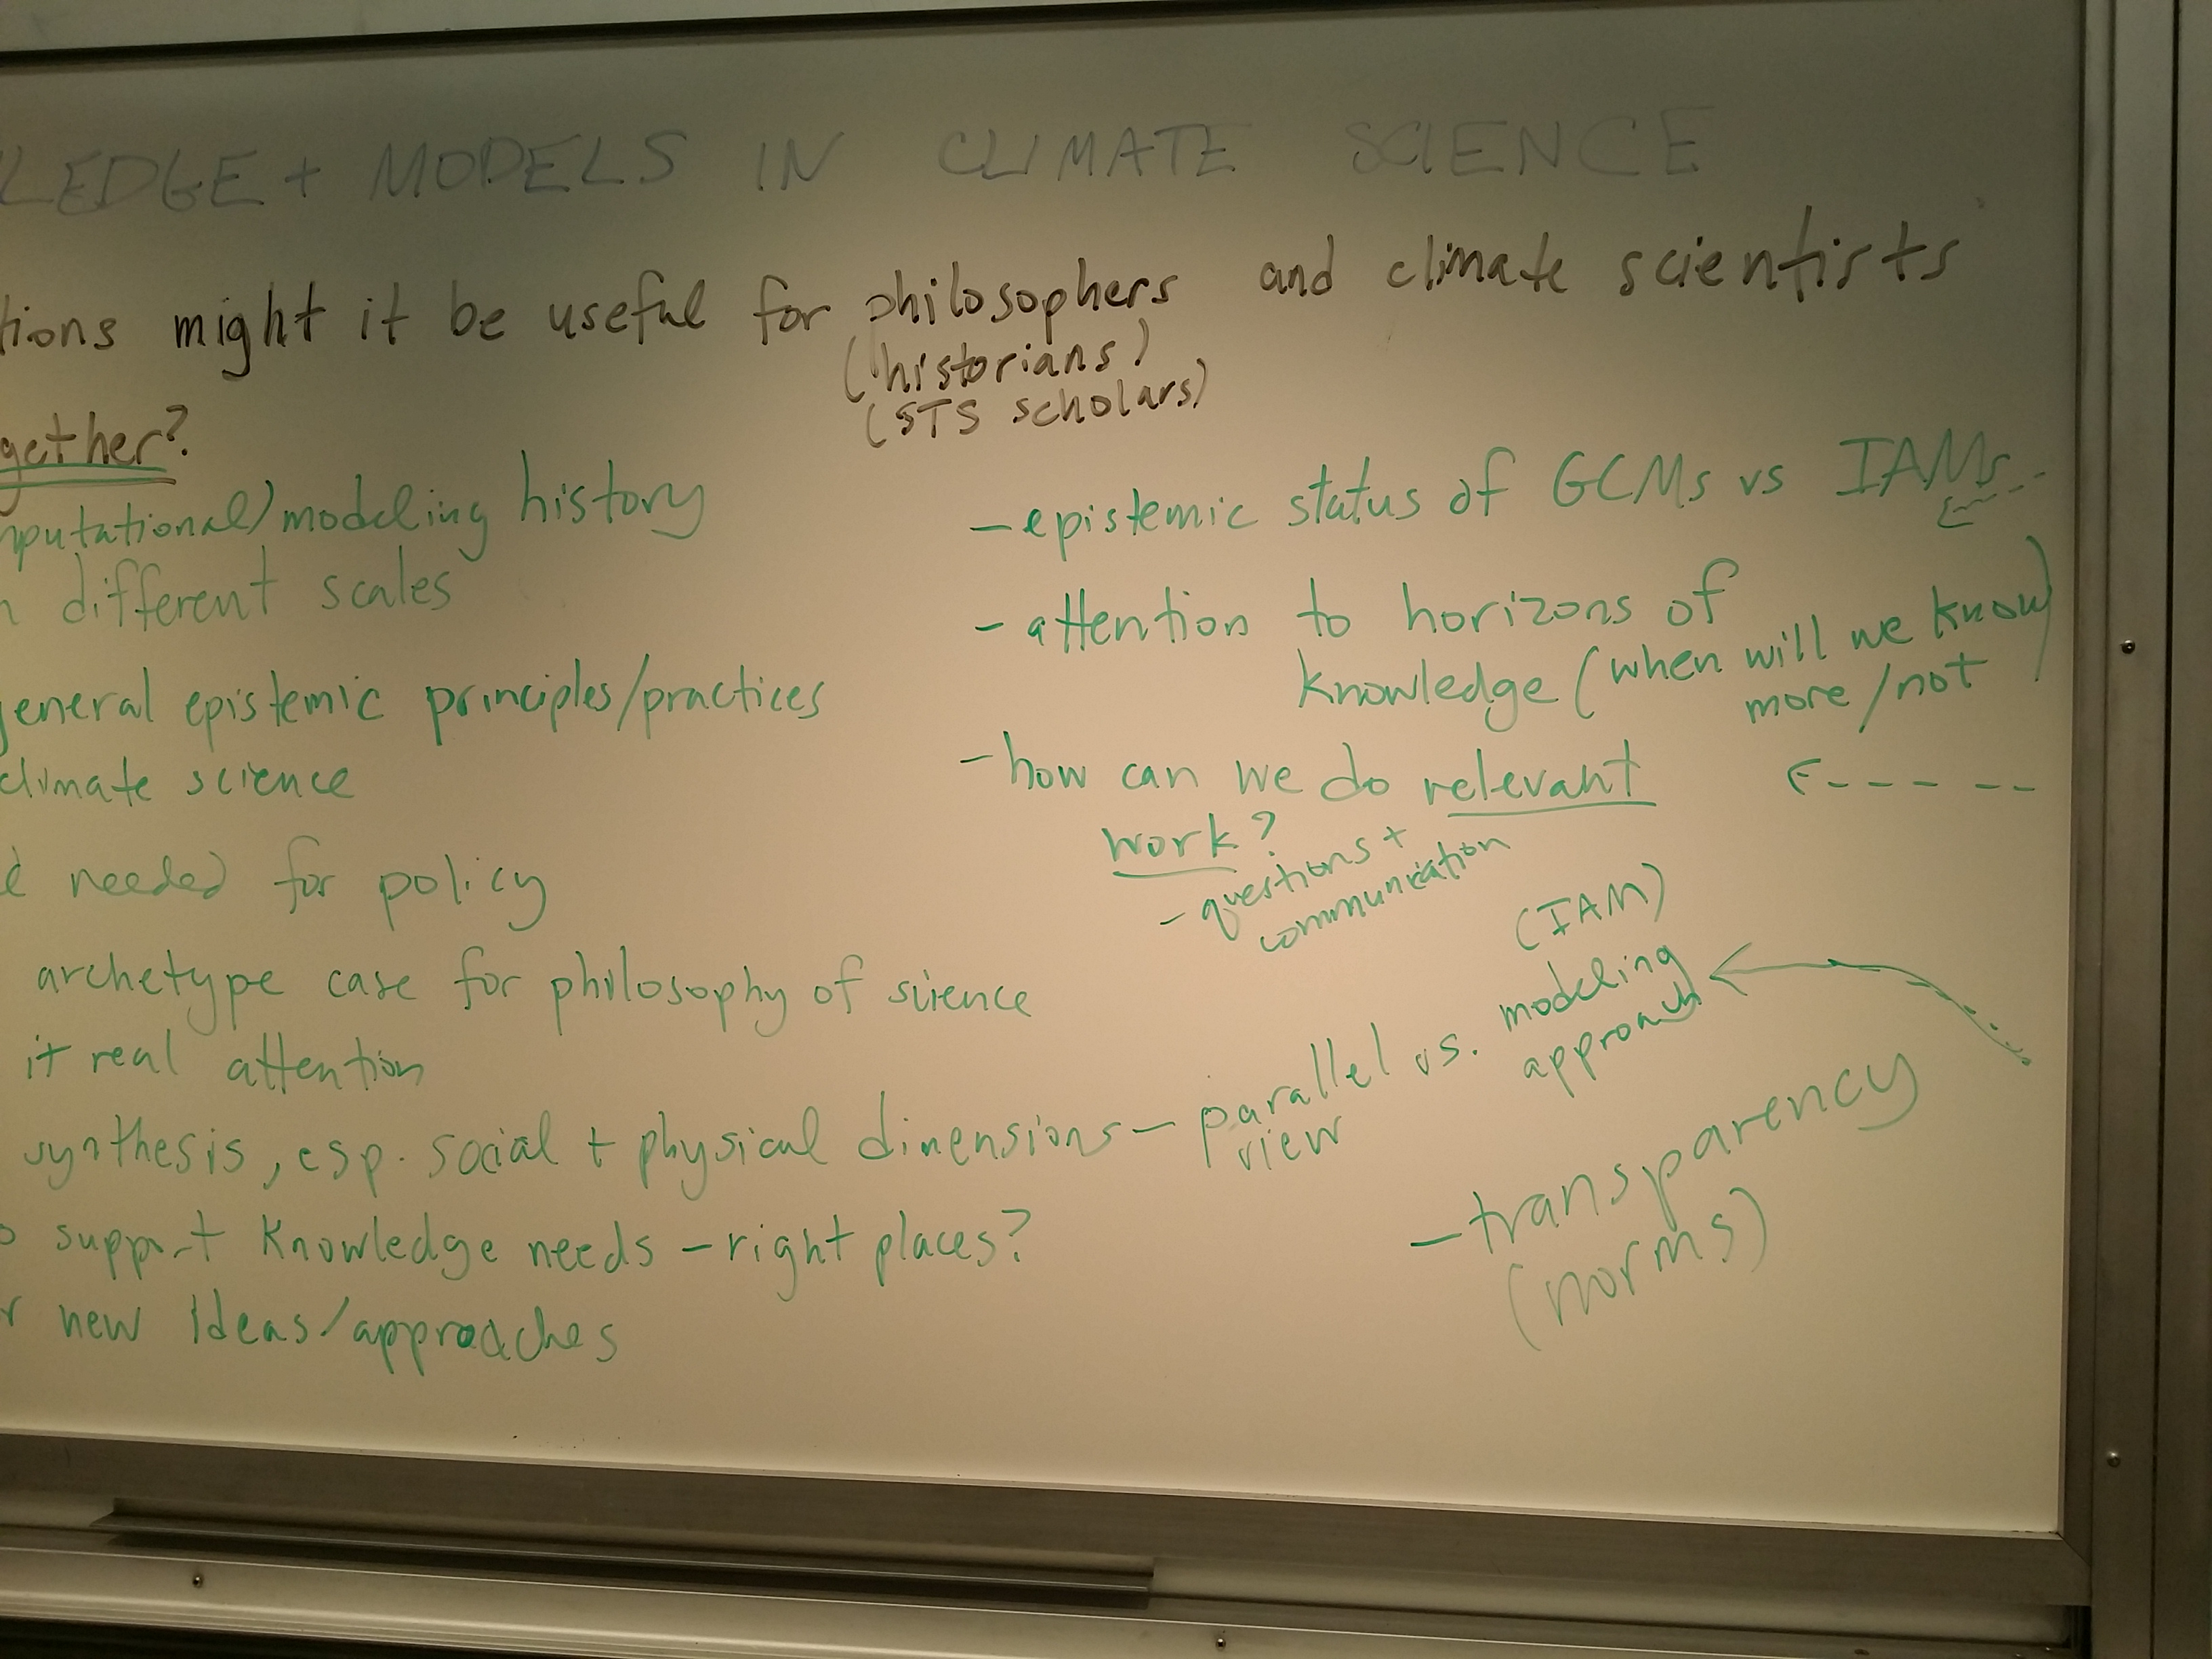 LEDGE + MODELS IN CLIMATE SCIENCE
tions might it be useful for philosophers and climate scientists
(historians)
(STS scholars)
gether?
mputational) modeling history
n different scales
general epistemic principles/practices
climate science
needed for policy
archetype case for philosophy of science
it real attention
synthesis, esp. social + physical dimensions - parallel vs. modeling
view
approach
(IAM)
o support knowledge needs - right places?
r new ideas/approaches
- epistemic status of GCMs vs IAMs
- attention to horizons of
knowledge (when will we know
more/not)
- how can we do relevant
work?
- questions +
communication
- transparency
(norms)